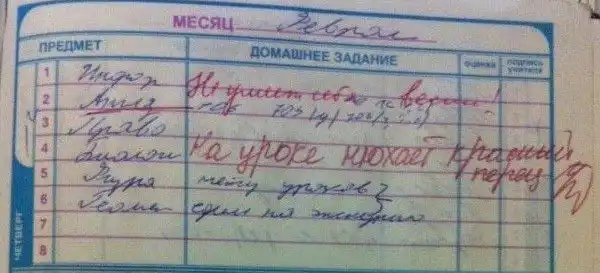 МЕСЯЦ Феврал
ПРЕДМЕТ ДОМАШНЕЕ ЗАДАНИЕ оценка подпись учителя
1 Инфор Не умеет себя вести!
2 Англ
3 Право
4 Биологи На уроке нюхает красный перец
5 Физра между уроков
6 Геомет
7
8
ЧЕТВЕРГ